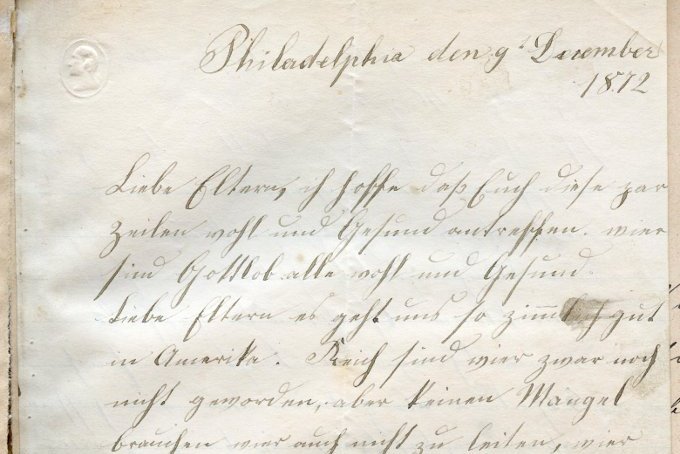 Philadelphia den 9t December
1872
Liebe Eltern, ich hoffe daß Euch diese par
Zeilen wohl und Gesund antreffen. wier
sind Gottlob alle wohl und Gesund.
Liebe Eltern es geht uns so zimmlich gut
in Amerika. Reich sind wier zwar noch
nicht geworden, aber keinen Mangel
brauchen wier auch nicht zu leiten, wier